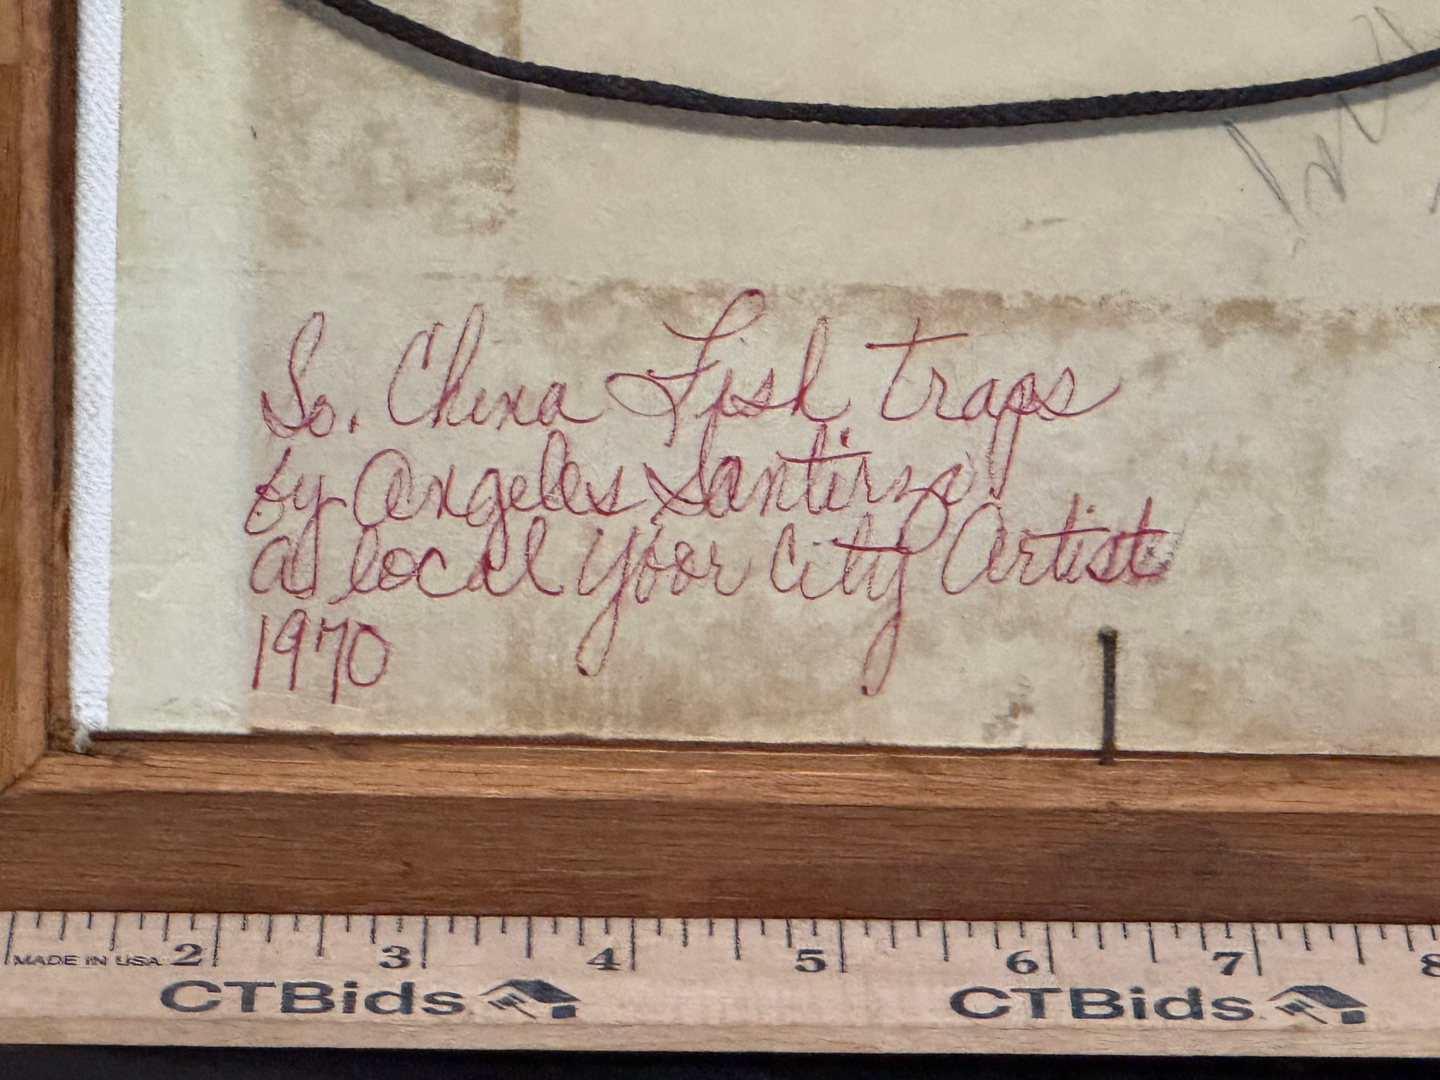 So. China Fish traps
by Angeles Santirzo
a local City Artist
1970
MADE IN USA 2 3 4 5 6 7 8
CTBids CTBids